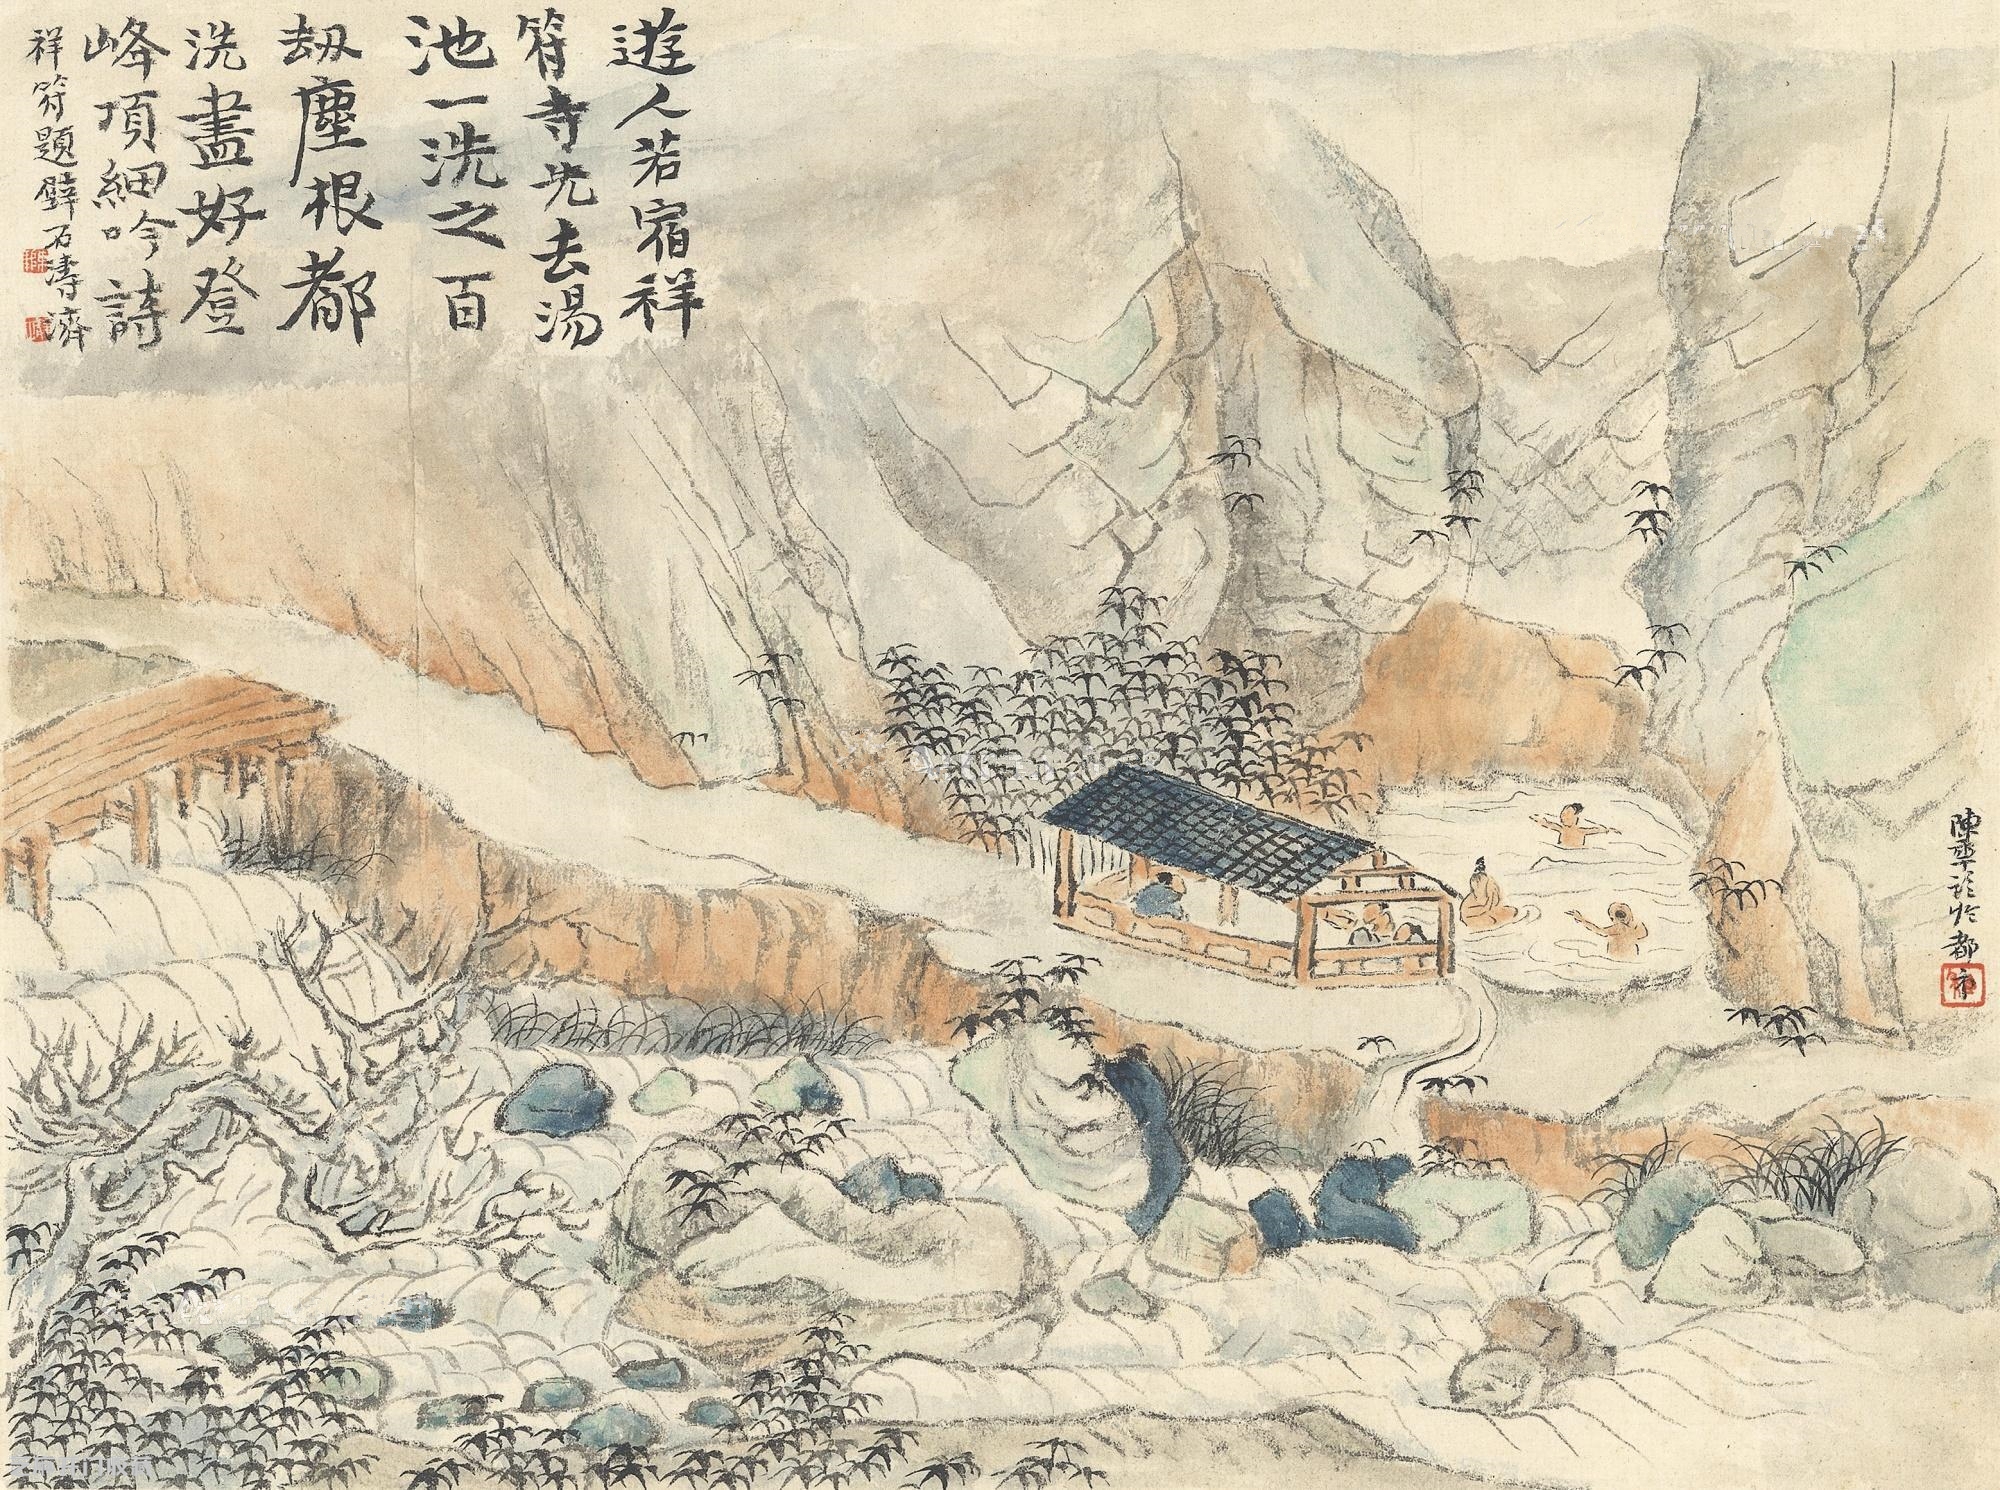 遊人若宿祥
符寺先去湯
池一洗之百
劫塵根都
洗盡好登
峰頂細吟詩
祥符題壁石濤濟